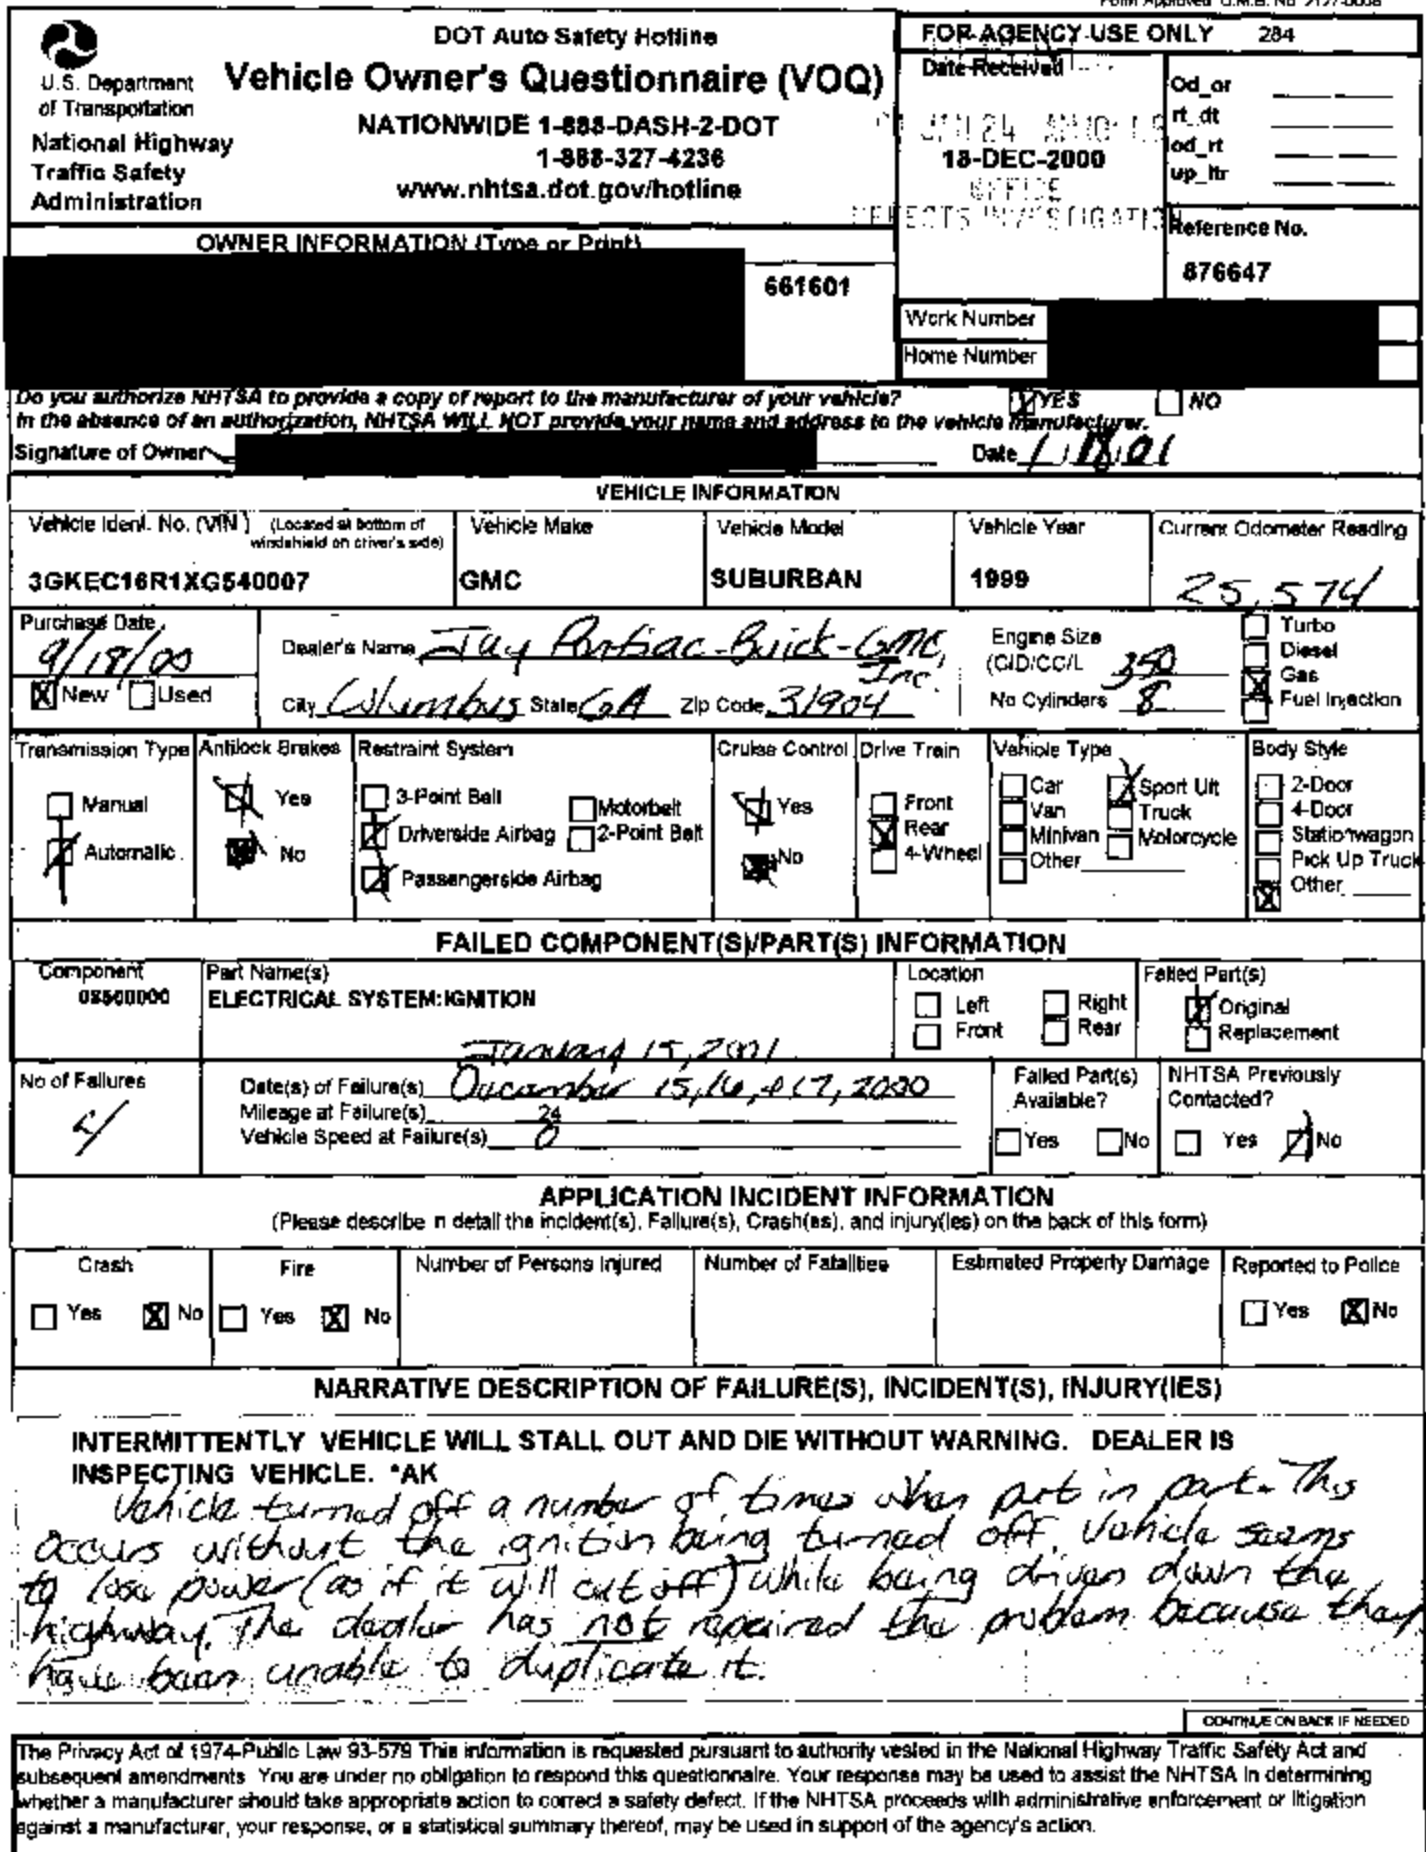 Form Approved O.M.B. No 2127-0008
DOT Auto Safety Hotline
Vehicle Owner's Questionnaire (VOQ)
NATIONWIDE 1-888-DASH-2-DOT
1-888-327-4236
www.nhtsa.dot.gov/hotline
U.S. Department
of Transportation
National Highway
Traffic Safety
Administration
FOR AGENCY USE ONLY 284
Date Received
JAN 24
18-DEC-2000
OFFICE
DEFECTS INVESTIGATION
Od_or
rt_dt
od_rt
up_ltr
Reference No.
876647
OWNER INFORMATION (Type or Print)
661601
Work Number
Home Number
Do you authorize NHTSA to provide a copy of report to the manufacturer of your vehicle? YES NO
In the absence of an authorization, NHTSA WILL NOT provide your name and address to the vehicle manufacturer.
Signature of Owner Date 1/18/01
VEHICLE INFORMATION
Vehicle Ident. No. (VIN ) (Located at bottom of
windshield on driver's side)
Vehicle Make Vehicle Model Vehicle Year Current Odometer Reading
3GKEC16R1XG540007 GMC SUBURBAN 1999 25,574
Purchase Date
9/18/00
New Used
Dealer's Name Jay Pontiac-Buick-GMC,
Inc.
City Columbus State GA Zip Code 31904
Engine Size
(CID/CC/L 350
No Cylinders 8
Turbo
Diesel
Gas
Fuel Injection
Transmission Type
Manual
Automatic
Antilock Brakes
Yes
No
Restraint System
3-Point Belt Motorbelt
Driverside Airbag 2-Point Belt
Passengerside Airbag
Cruise Control
Yes
No
Drive Train
Front
Rear
4-Wheel
Vehicle Type
Car Sport Utl
Van Truck
Minivan Motorcycle
Other
Body Style
2-Door
4-Door
Stationwagon
Pick Up Truck
Other
FAILED COMPONENT(S)/PART(S) INFORMATION
Component
08500000
Part Name(s)
ELECTRICAL SYSTEM:IGNITION
Location
Left Right
Front Rear
Failed Part(s)
Original
Replacement
No of Failures
4
January 15, 2001
Date(s) of Failure(s) December 15,16,+17, 2000
Mileage at Failure(s) 24
Vehicle Speed at Failure(s) 0
Failed Part(s)
Available?
Yes No
NHTSA Previously
Contacted?
Yes No
APPLICATION INCIDENT INFORMATION
(Please describe in detail the incident(s), Failure(s), Crash(es), and injury(ies) on the back of this form)
Crash Fire Number of Persons Injured Number of Fatalities Estimated Property Damage Reported to Police
Yes No Yes No Yes No
NARRATIVE DESCRIPTION OF FAILURE(S), INCIDENT(S), INJURY(IES)
INTERMITTENTLY VEHICLE WILL STALL OUT AND DIE WITHOUT WARNING. DEALER IS
INSPECTING VEHICLE. *AK
Vehicle turned off a number of times when put in park. This
occurs without the ignition being turned off. Vehicle seems
to lose power (as if it will cut off) while being driven down the
highway. The dealer has not repaired the problem because they
have been unable to duplicate it.
CONTINUE ON BACK IF NEEDED
The Privacy Act of 1974-Public Law 93-579 This information is requested pursuant to authority vested in the National Highway Traffic Safety Act and
subsequent amendments You are under no obligation to respond this questionnaire. Your response may be used to assist the NHTSA in determining
whether a manufacturer should take appropriate action to correct a safety defect. If the NHTSA proceeds with administrative enforcement or litigation
against a manufacturer, your response, or a statistical summary thereof, may be used in support of the agency's action.